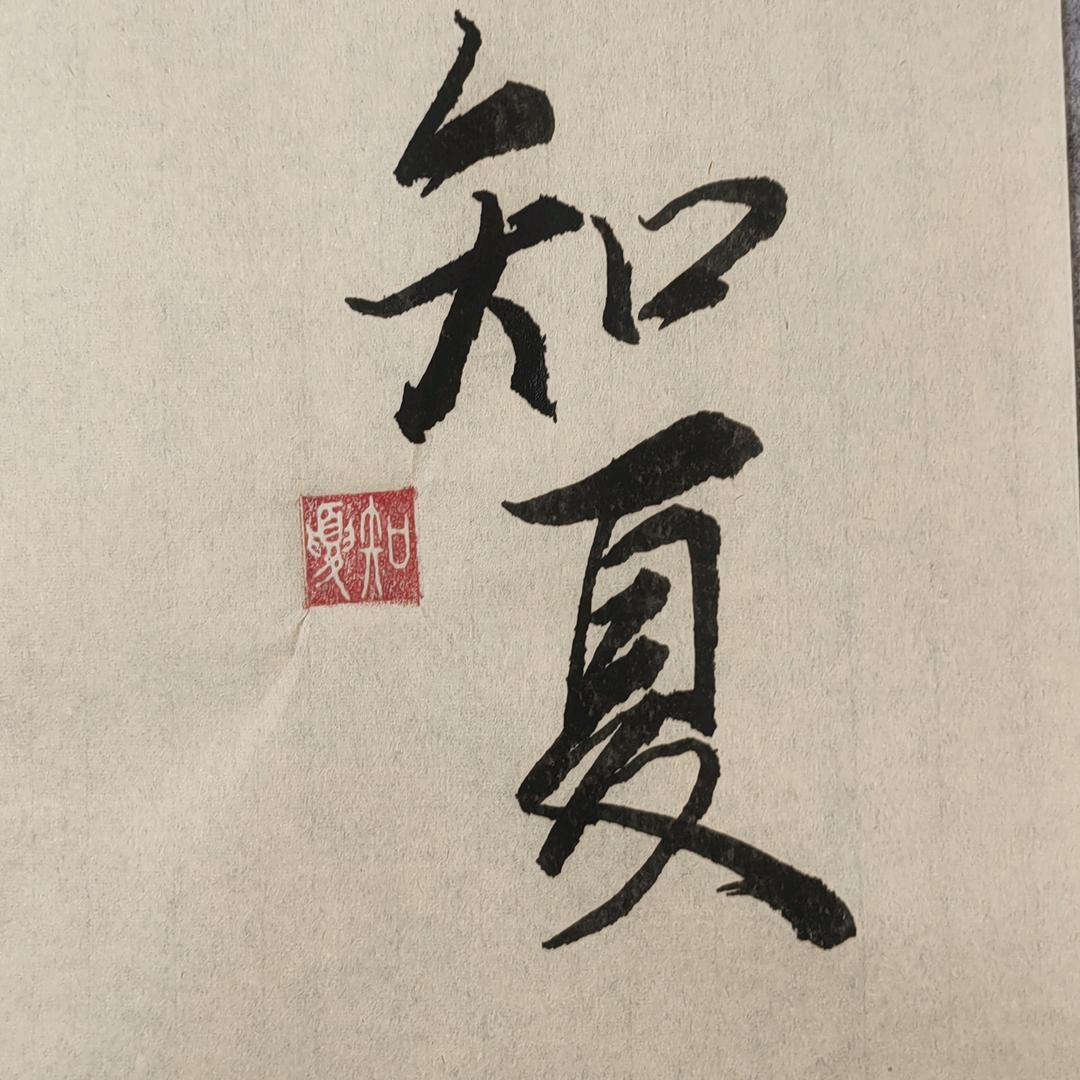 知夏
知夏